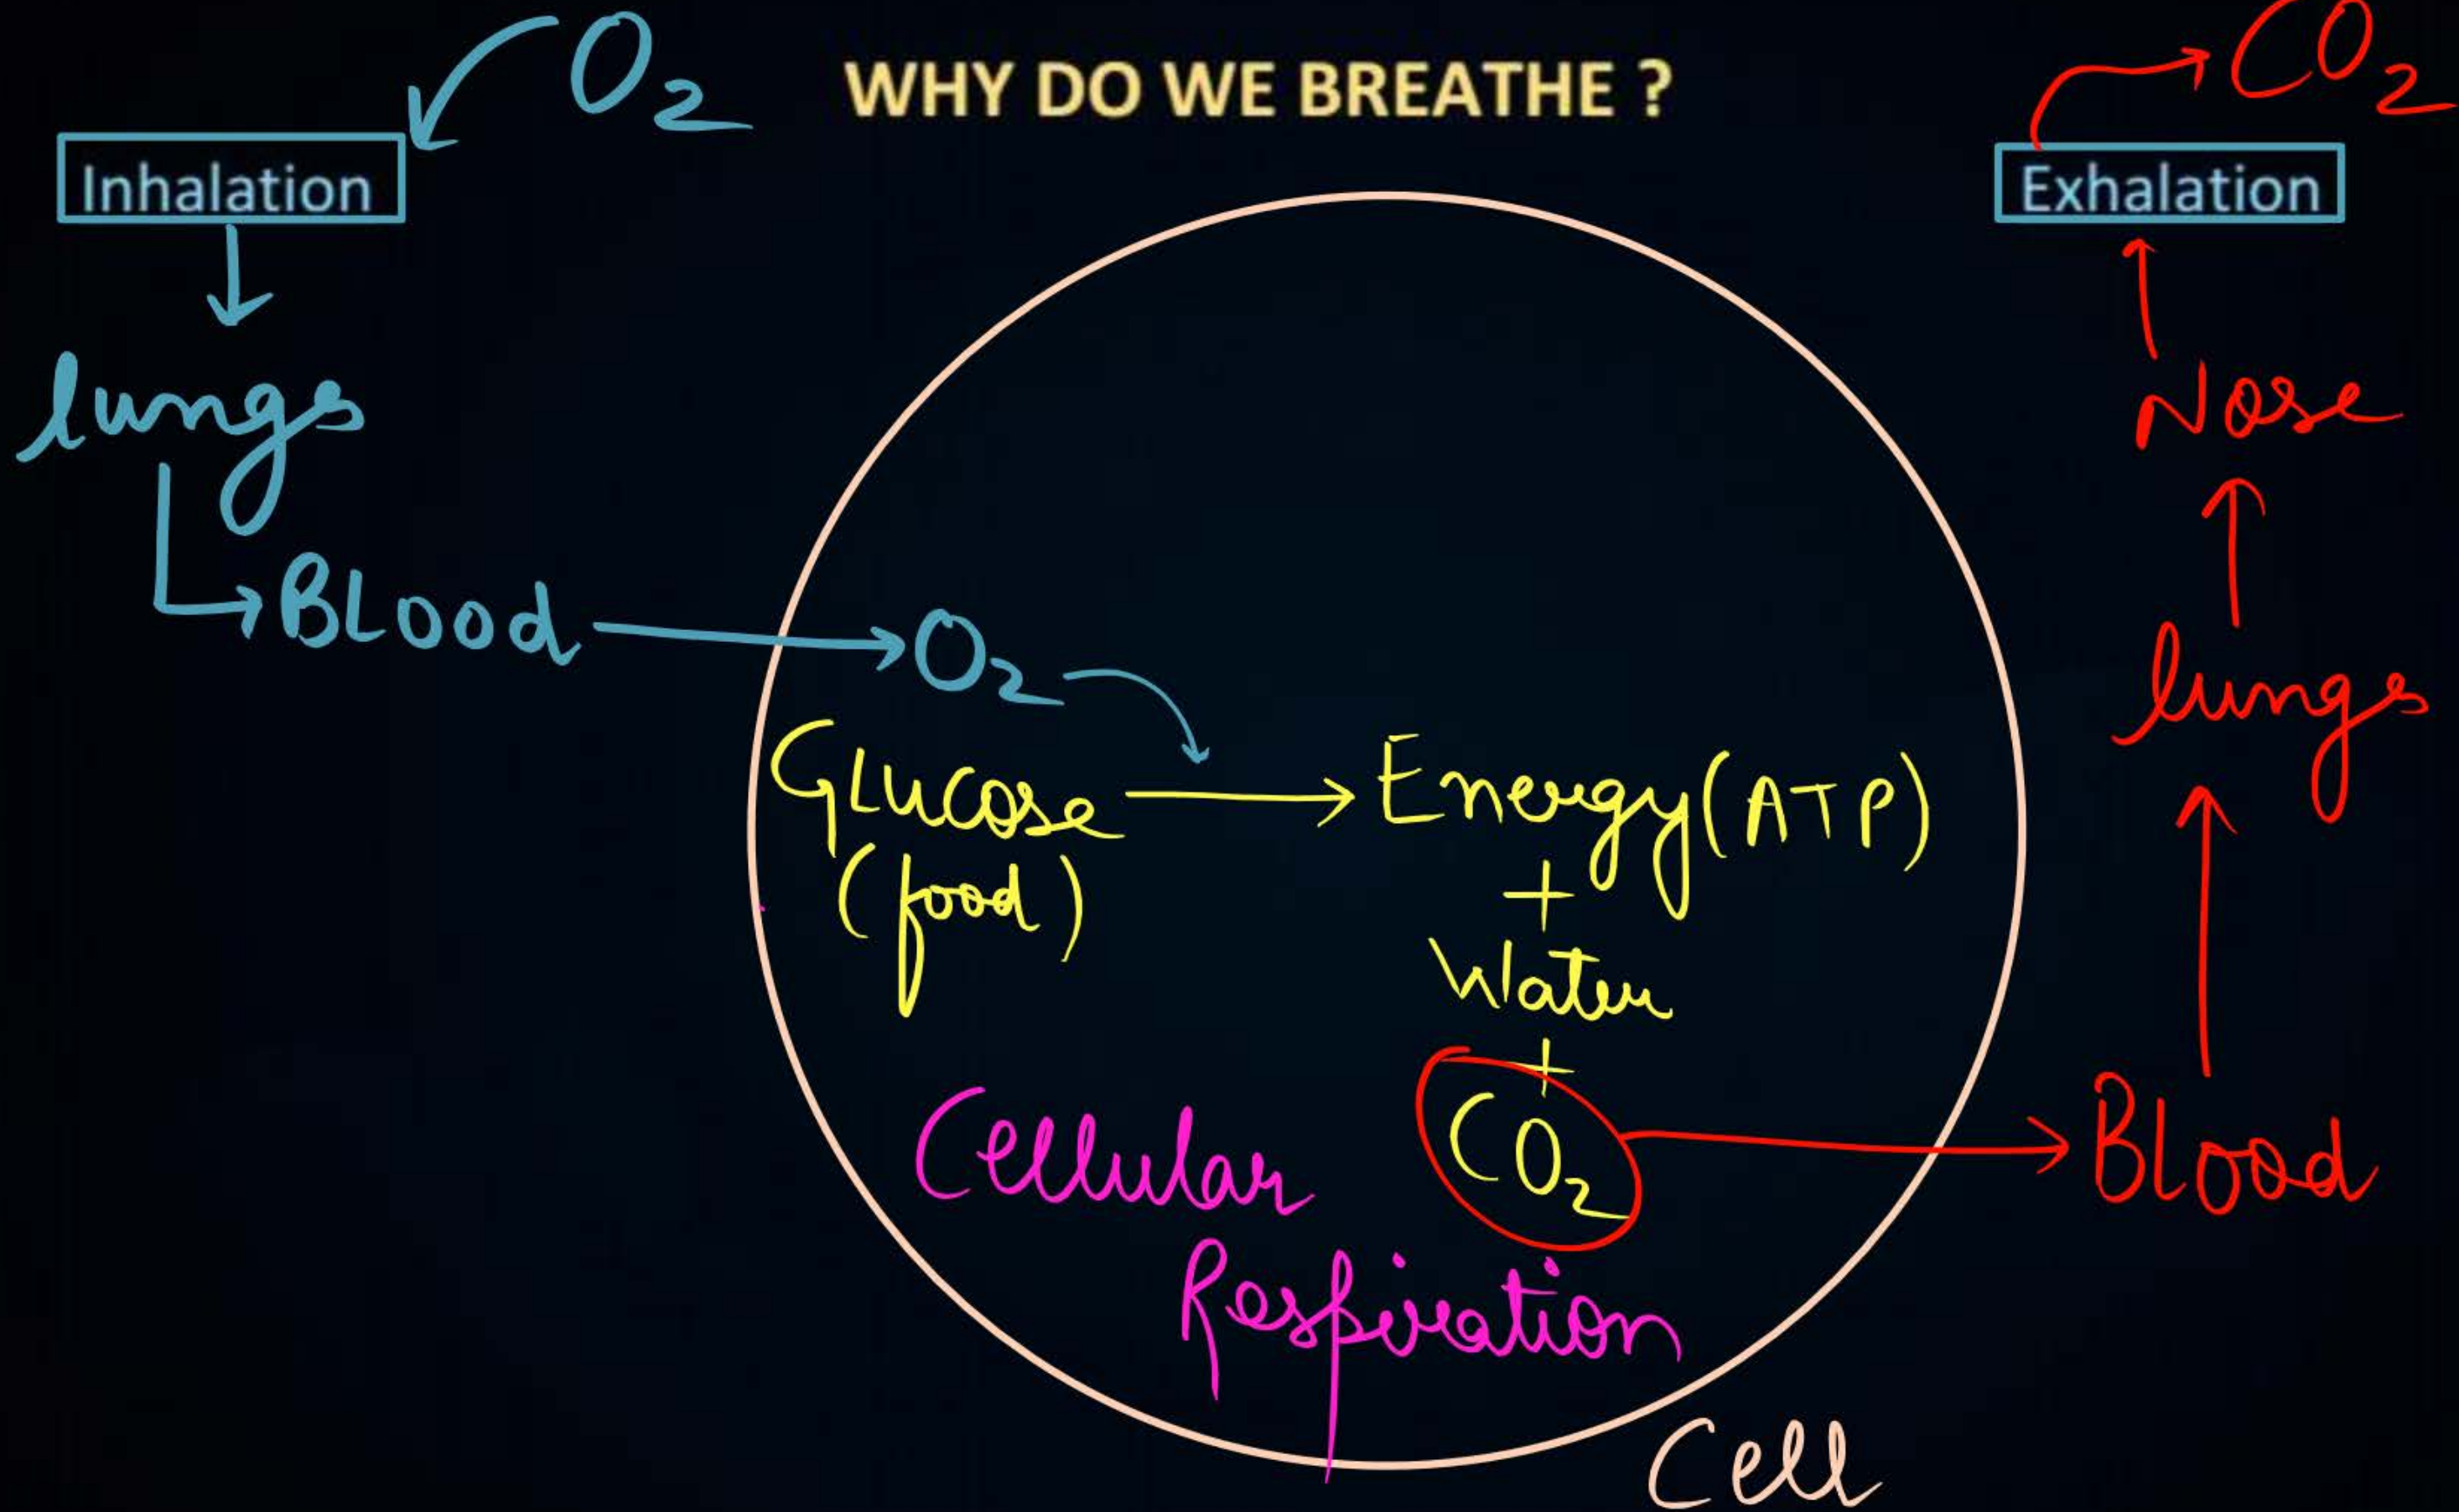 WHY DO WE BREATHE ?
O₂
Inhalation
lungs
Blood
O₂
Glucose
(food)
Energy (ATP)
+
Water
+
CO₂
Cellular
Respiration
Cell
CO₂
Exhalation
Nose
lungs
Blood